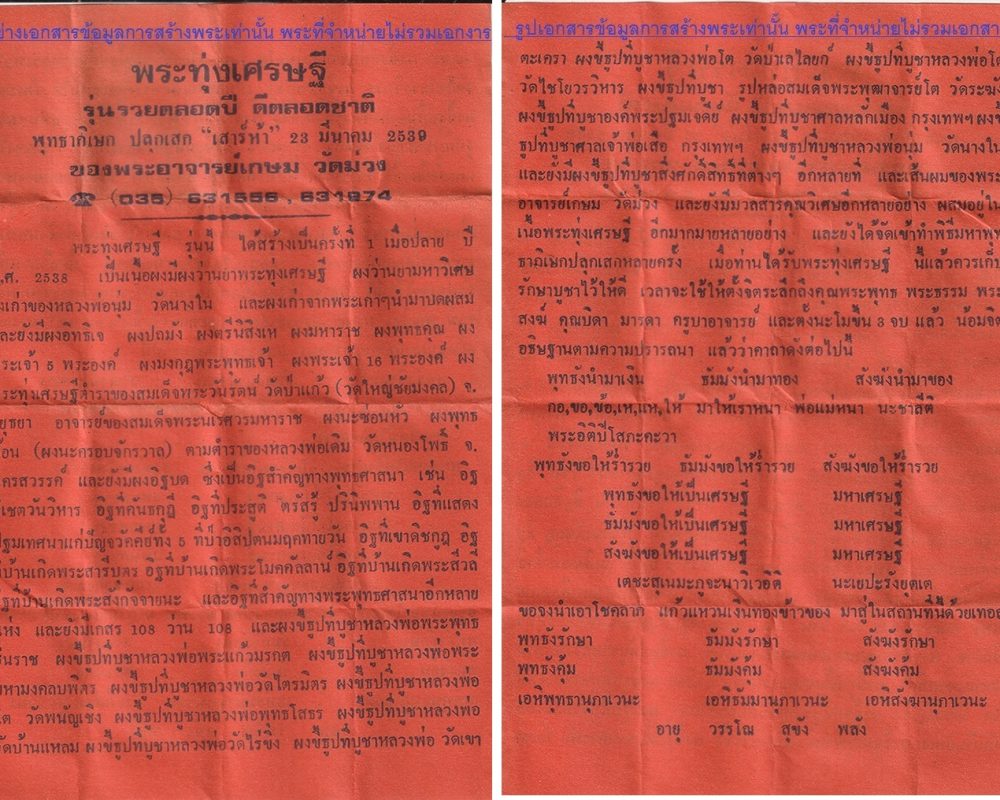 ปางเอกสารข้อมูลการสร้างพระเท่านั้น พระที่จำหน่ายไม่รวมเอกงาร
พระทุ่งเศรษฐี
รุ่นรวยตลอดปี ดีตลอดชาติ
พุทธาภิเษก ปลุกเสก "เสาร์ห้า" 23 มีนาคม 2539
ของพระอาจารย์เกษม วัดม่วง
☎ (035) 631556, 631974
พระทุ่งเศรษฐี รุ่นนี้ ได้สร้างเป็นครั้งที่ 1 เมื่อปลาย ปี
.ศ. 2538 เป็นเนื้อผงมีผงว่านยาพระทุ่งเศรษฐี ผงว่านยามหาวิเศษ
งเก่าของหลวงพ่อนุ่ม วัดนางใน และผงเก่าจากพระเก่าๆนำมาบดผสม
ละยังมีผงอิทธิเจ ผงปถมัง ผงตรีนิสิงเห ผงมหาราช ผงพุทธคุณ ผง
ระเจ้า 5 พระองค์ ผงมงกุฎพระพุทธเจ้า ผงพระเจ้า 16 พระองค์ ผง
ระทุ่งเศรษฐีตำราของสมเด็จพระวันรัตน์ วัดป่าแก้ว (วัดใหญ่ชัยมงคล) จ.
ยุธยา อาจารย์ของสมเด็จพระนเรศวรมหาราช ผงนะซ่อนหัว ผงพุทธ
้อน (ผงนะครอบจักรวาล) ตามตำราของหลวงพ่อเดิม วัดหนองโพธิ์ จ.
ครสวรรค์ และยังมีผงอิฐบด ซึ่งเป็นอิฐสำคัญทางพุทธศาสนา เช่น อิฐ
เชตวันวิหาร อิฐที่คันธกุฎี อิฐที่ประสูติ ตรัสรู้ ปรินิพพาน อิฐที่แสดง
ปฐมเทศนาแก่ปัญจวัคคีย์ทั้ง 5 ที่ป่าอิสิปตนมฤคทายวัน อิฐที่เขาคิชกูฎ อิฐ
บ้านเกิดพระสารีบุตร อิฐที่บ้านเกิดพระโมคคัลลาน์ อิฐที่บ้านเกิดพระสีวลี
ฐที่บ้านเกิดพระสังกัจจายนะ และอิฐที่สำคัญทางพระพุทธศาสนาอีกหลาย
ห่ง และยังมีเกสร 108 ว่าน 108 และผงขี้ธูปที่บูชาหลวงพ่อพระพุทธ
ินราช ผงขี้ธูปที่บูชาหลวงพ่อพระแก้วมรกต ผงขี้ธูปที่บูชาหลวงพ่อพระ
มหามงคลบพิตร ผงขี้ธูปที่บูชาหลวงพ่อวัดไตรมิตร ผงขี้ธูปที่บูชาหลวงพ่อ
ต วัดพนัญเชิง ผงขี้ธูปที่บูชาหลวงพ่อพุทธโสธร ผงขี้ธูปที่บูชาหลวงพ่อ
วัดบ้านแหลม ผงขี้ธูปที่บูชาหลวงพ่อวัดไร่ขิง ผงขี้ธูปที่บูชาหลวงพ่อ วัดเขา
รูปเอกสารข้อมูลการสร้างพระเท่านั้น พระที่จำหน่ายไม่รวมเอกสา
ตะเครา ผงขี้ธูปที่บูชาหลวงพ่อโต วัดป่าเลไลยก์ ผงขี้ธูปที่บูชาหลวงพ่อโต
วัดไชโยวรวิหาร ผงขี้ธูปที่บูชา รูปหล่อสมเด็จพระพุฒาจารย์โต วัดระฆัง
ผงขี้ธูปที่บูชาองค์พระปฐมเจดีย์ ผงขี้ธูปที่บูชาศาลหลักเมือง กรุงเทพฯ ผงขี้
ธูปที่บูชาศาลเจ้าพ่อเสือ กรุงเทพฯ ผงขี้ธูปที่บูชาหลวงพ่อนุ่ม วัดนางใน
และยังมีผงขี้ธูปที่บูชาสิ่งศักดิ์สิทธิ์ที่ต่างๆ อีกหลายที่ และเส้นผมของพระ
อาจารย์เกษม วัดม่วง และยังมีมวลสารคุณวิเศษอีกหลายอย่าง ผสมอยู่ใน
เนื้อพระทุ่งเศรษฐี อีกมากมายหลายอย่าง และยังได้จัดเข้าทำพิธีมหาพุท
ธาภิเษกปลุกเสกหลายครั้ง เมื่อท่านได้รับพระทุ่งเศรษฐี นี้แล้วควรเก็บ
รักษาบูชาไว้ให้ดี เวลาจะใช้ให้ตั้งจิตระลึกถึงคุณพระพุทธ พระธรรม พระ
สงฆ์ คุณบิดา มารดา ครูบาอาจารย์ และตั้งนะโมขึ้น 3 จบ แล้ว น้อมจิต
อธิษฐานตามความปรารถนา แล้วว่าคาถาดังต่อไปนี้
พุทธังนำมาเงิน ธัมมังนำมาทอง สังฆังนำมาของ
กอ,ขอ,ข้อ,เห,แห,ให้ มาให้เราหนา พ่อแม่หนา นะชาลีติ
พระอิติปิโสภะคะวา
พุทธังขอให้ร่ำรวย ธัมมังขอให้ร่ำรวย สังฆังขอให้ร่ำรวย
พุทธังขอให้เป็นเศรษฐี มหาเศรษฐี
ธัมมังขอให้เป็นเศรษฐี มหาเศรษฐี
สังฆังขอให้เป็นเศรษฐี มหาเศรษฐี
เตชะสุเนมะภูจะนาวิเวอิติ นะเยปะรังยุตเต
ขอจงนำเอาโชคลาภ แก้วแหวนเงินทองข้าวของ มาสู่ในสถานที่นี้ด้วยเทอ
พุทธังรักษา ธัมมังรักษา สังฆังรักษา
พุทธังคุ้ม ธัมมังคุ้ม สังฆังคุ้ม
เอหิพุทธานุภาเวนะ เอหิธัมมานุภาเวนะ เอหิสังฆานุภาเวนะ
อายุ วรรโณ สุขัง พลัง